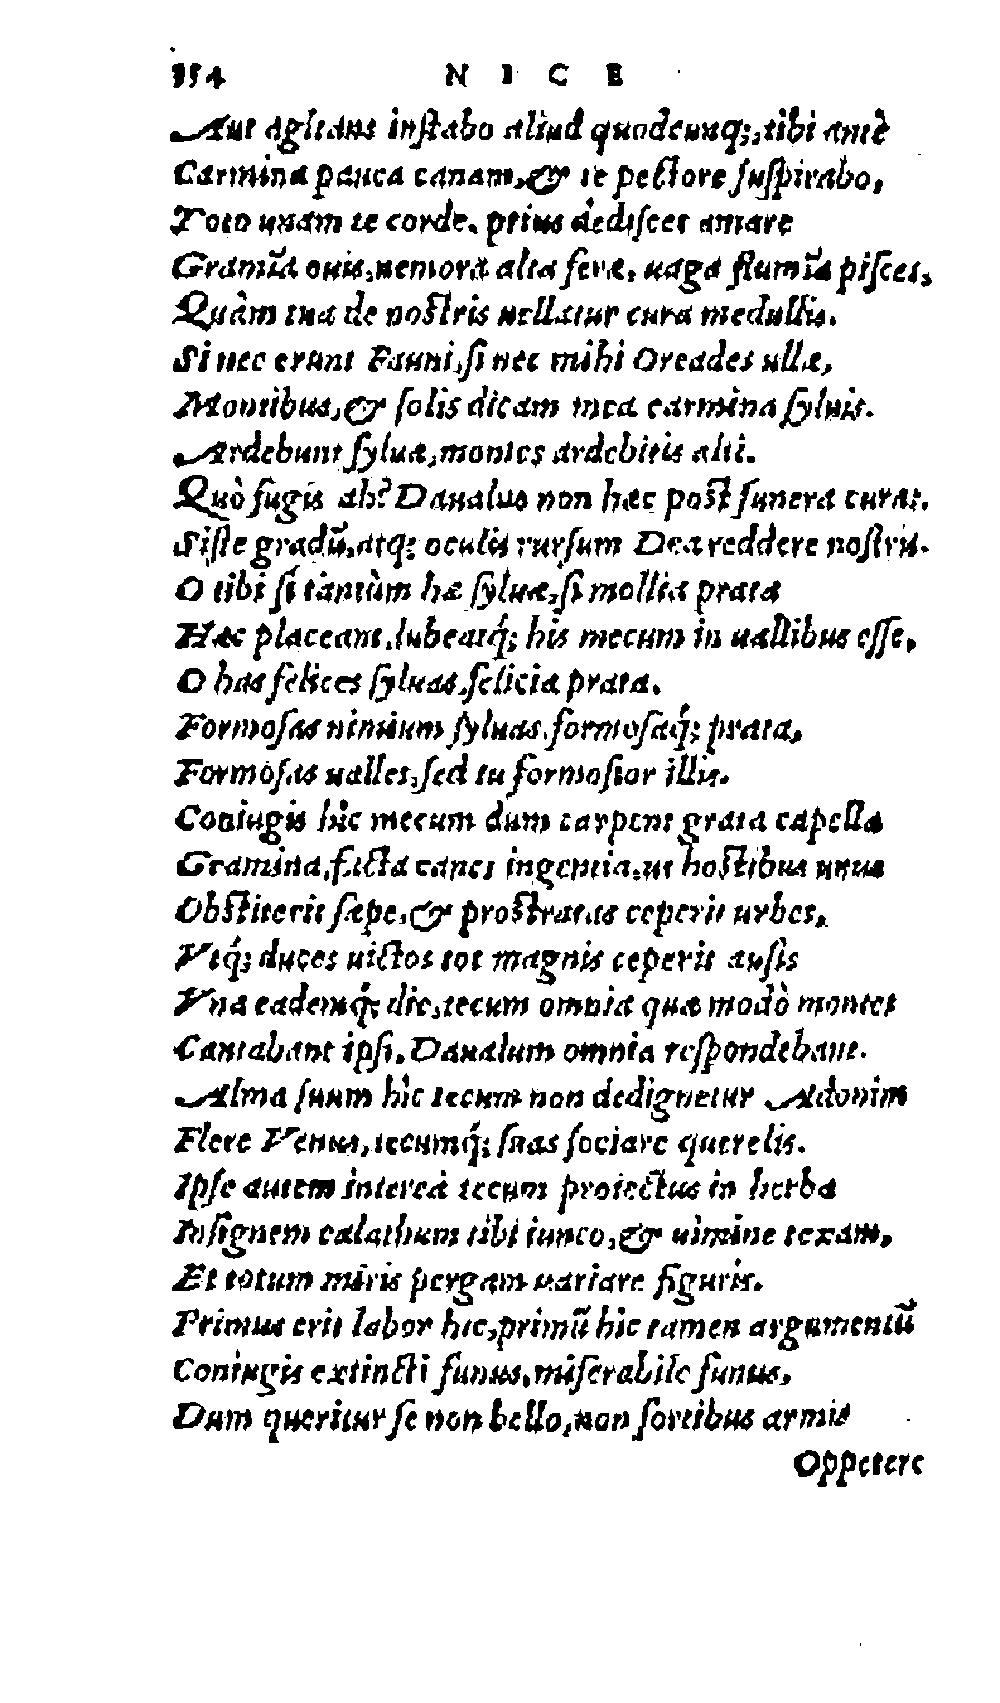 154 NICE
Aut agitans instabo aliud quodcunq;, tibi antè
Carmina pauca canam, & te pectore suspirabo,
Toto unam te corde. prius dediscet amare
Gramĩa ouis, nemora alta feræ, uaga flumĩa pisces,
Quàm tua de nostris uellatur cura medullis.
Si nec erunt Fauni, si nec mihi Oreades ullæ,
Montibus, & solis dicam mea carmina syluis.
Ardebunt syluæ, montes ardebitis alti.
Quò fugis ah? Daualus non hæc post funera curat.
Siste gradũ, atq; oculis rursum Dea reddere nostris.
O tibi si tantùm hæ syluæ, si mollia prata
Hæc placeant, lubeatq́; his mecum in uallibus esse,
O has felices syluas, felicia prata.
Formosas nimium syluas, formosaq́; prata,
Formosas ualles, sed tu formosior illis.
Coniugis hîc mecum dum carpent grata capellæ
Gramina, facta canes ingentia, ut hostibus unus
Obstiterit sæpe, & prostratas ceperit urbes,
Vtq́; duces uictos tot magnis ceperit ausis
Vna eademq́; die, tecum omnia quæ modò montes
Cantabant ipsi, Daualum omnia respondebant.
Alma suum hîc tecum non dedignetur Adonim
Flere Venus, tecumq́; suas sociare querelis.
Ipse autem intereà tecum proiectus in herba
Insignem calathum tibi iunco, & uimine texam,
Et totum miris pergam uariare figuris.
Primus erit labor hic, primũ hic tamen argumentũ
Coniugis extincti funus, miserabile funus,
Dum queritur se non bello, non fortibus armis
Oppetere